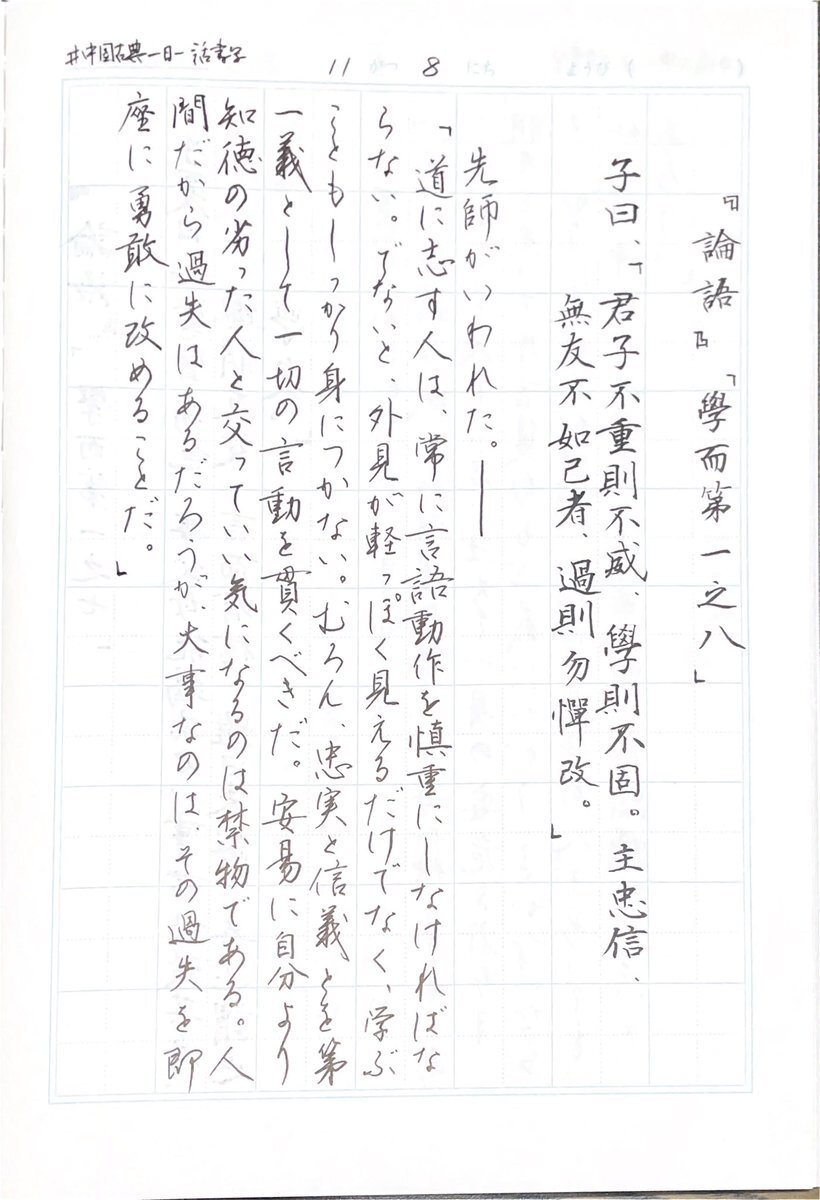 #中国古典一日一話書写
11がつ8にちようび( )
『論語』「學而第一之八」
子曰、「君子不重則不威、學則不固。主忠信、
無友不如己者、過則勿憚改。」
先師がいわれた。――
「道に志す人は、常に言語動作を慎重にしなければな
らない。でないと、外見が軽っぽく見えるだけでなく、学ぶ
こともしっかり身につかない。むろん、忠実と信義とを第
一義として一切の言動を貫くべきだ。安易に自分より
知徳の劣った人と交っていい気になるのは禁物である。人
間だから過失はあるだろうが、大事なのは、その過失を即
座に勇敢に改めることだ。」